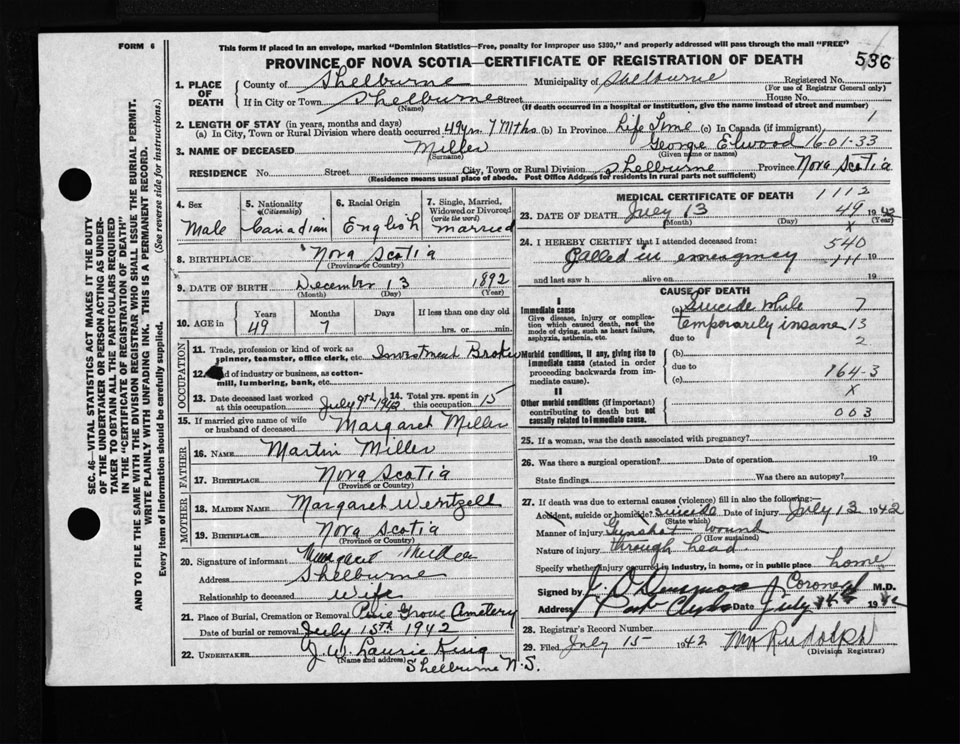 FORM 6
This form if placed in an envelope, marked "Dominion Statistics—Free, penalty for improper use $300," and properly addressed will pass through the mail "FREE"
PROVINCE OF NOVA SCOTIA—CERTIFICATE OF REGISTRATION OF DEATH 536
1. PLACE OF DEATH
County of Shelburne Municipality of Shelburne Registered No.
(For use of Registrar General only)
If in City or Town Shelburne Street House No.
(Name) (If death occurred in a hospital or institution, give the name instead of street and number)
2. LENGTH OF STAY (in years, months and days)
(a) In City, Town or Rural Division where death occurred 49 yrs. 7 Mths (b) In Province Life Time (c) In Canada (if immigrant) 1
3. NAME OF DECEASED Miller George Elwood 16-01-33
(Surname) (Given name or names)
RESIDENCE No. Street City, Town or Rural Division Shelburne Province Nova Scotia
(Residence means usual place of abode. Post Office Address for residents in rural parts not sufficient)
4. Sex
Male
5. Nationality
(Citizenship)
Canadian
6. Racial Origin
English
7. Single, Married, Widowed or Divorced
(write the word)
married
8. BIRTHPLACE Nova Scotia
(Province or Country)
9. DATE OF BIRTH December 13 1892
(Month) (Day) (Year)
10. AGE in
Years Months Days If less than one day old
49 7 hrs. or min.
OCCUPATION
11. Trade, profession or kind of work as spinner, teamster, office clerk, etc. Investment Broker
12. Kind of industry or business, as cotton-mill, lumbering, bank, etc.
13. Date deceased last worked at this occupation July 9th 1942
14. Total yrs. spent in this occupation 15
15. If married give name of wife or husband of deceased Margaret Miller
FATHER
16. NAME Martin Miller
17. BIRTHPLACE Nova Scotia
(Province or Country)
MOTHER
18. MAIDEN NAME Margaret Wentzell
19. BIRTHPLACE Nova Scotia
(Province or Country)
20. Signature of informant Margaret
Address Shelburne
Relationship to deceased Wife
21. Place of Burial, Cremation or Removal Pine Grove Cemetery
Date of burial or removal July 15th 1942
22. UNDERTAKER J. W. Laurie King
(Name and address) Shelburne N.S.
MEDICAL CERTIFICATE OF DEATH 1112
23. DATE OF DEATH July 13 49 1942
(Month) (Day) (Year)
x
24. I HEREBY CERTIFY that I attended deceased from: 540
Called in emergency 19
and last saw h alive on 19
CAUSE OF DEATH
I
Immediate cause
Give disease, injury or complication which caused death, not the mode of dying, such as heart failure, asphyxia, asthenia, etc.
(a) Suicide while 7
temporarily insane 13
due to 2
Morbid conditions, if any, giving rise to immediate cause (stated in order proceeding backwards from immediate cause).
(b)
due to 164-3
(c)
x
II
Other morbid conditions (if important) contributing to death but not causally related to immediate cause.
003
25. If a woman, was the death associated with pregnancy?
26. Was there a surgical operation? Date of operation 19
State findings Was there an autopsy?
27. If death was due to external causes (violence) fill in also the following:—
Accident, suicide or homicide? Suicide Date of injury July 13 1942
(State which)
Manner of injury Gunshot wound
(How sustained)
Nature of injury through head
Specify whether injury occurred in industry, in home, or in public place home
Signed by Coroner M.D.
Address Port Clyde Date July 1942
28. Registrar's Record Number
29. Filed July 15 1942 Rudolph
(Division Registrar)
SEC. 46—VITAL STATISTICS ACT MAKES IT THE DUTY
OF THE UNDERTAKER OR PERSON ACTING AS UNDER-
TAKER TO OBTAIN ALL THE PARTICULARS REQUIRED
IN THE "CERTIFICATE OF REGISTRATION OF DEATH"
AND TO FILE THE SAME WITH THE DIVISION REGISTRAR WHO SHALL ISSUE THE BURIAL PERMIT.
WRITE PLAINLY WITH UNFADING INK. THIS IS A PERMANENT RECORD.
Every item of information should be carefully supplied. (See reverse side for instructions.)